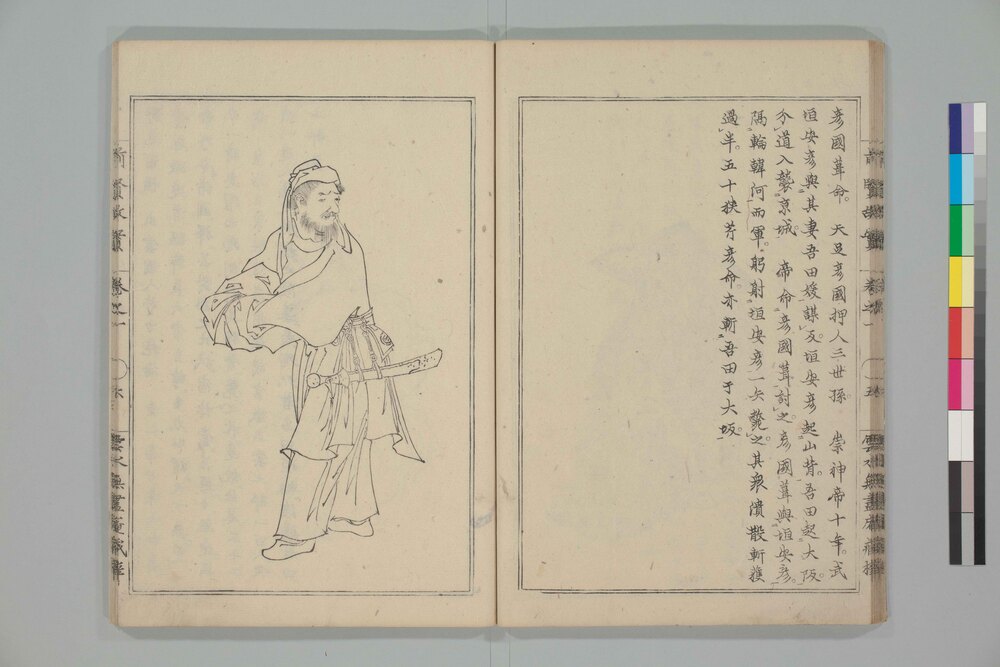 彦國葺命。天足彦國押人三世孫。崇神帝十年。武
垣安彦與其妻吾田媛謀反。垣安彦起山背。吾田起大阪。
分道入襲京城。帝命彦國葺討之。彦國葺與垣安彦。
隔輪韓河而軍。躬射垣安彦一矢斃之。其衆潰散斬獲
過半。五十狹芹彦命。亦斬吾田于大坂。
前賢故實
卷之一
五
前賢故實
卷之一
六